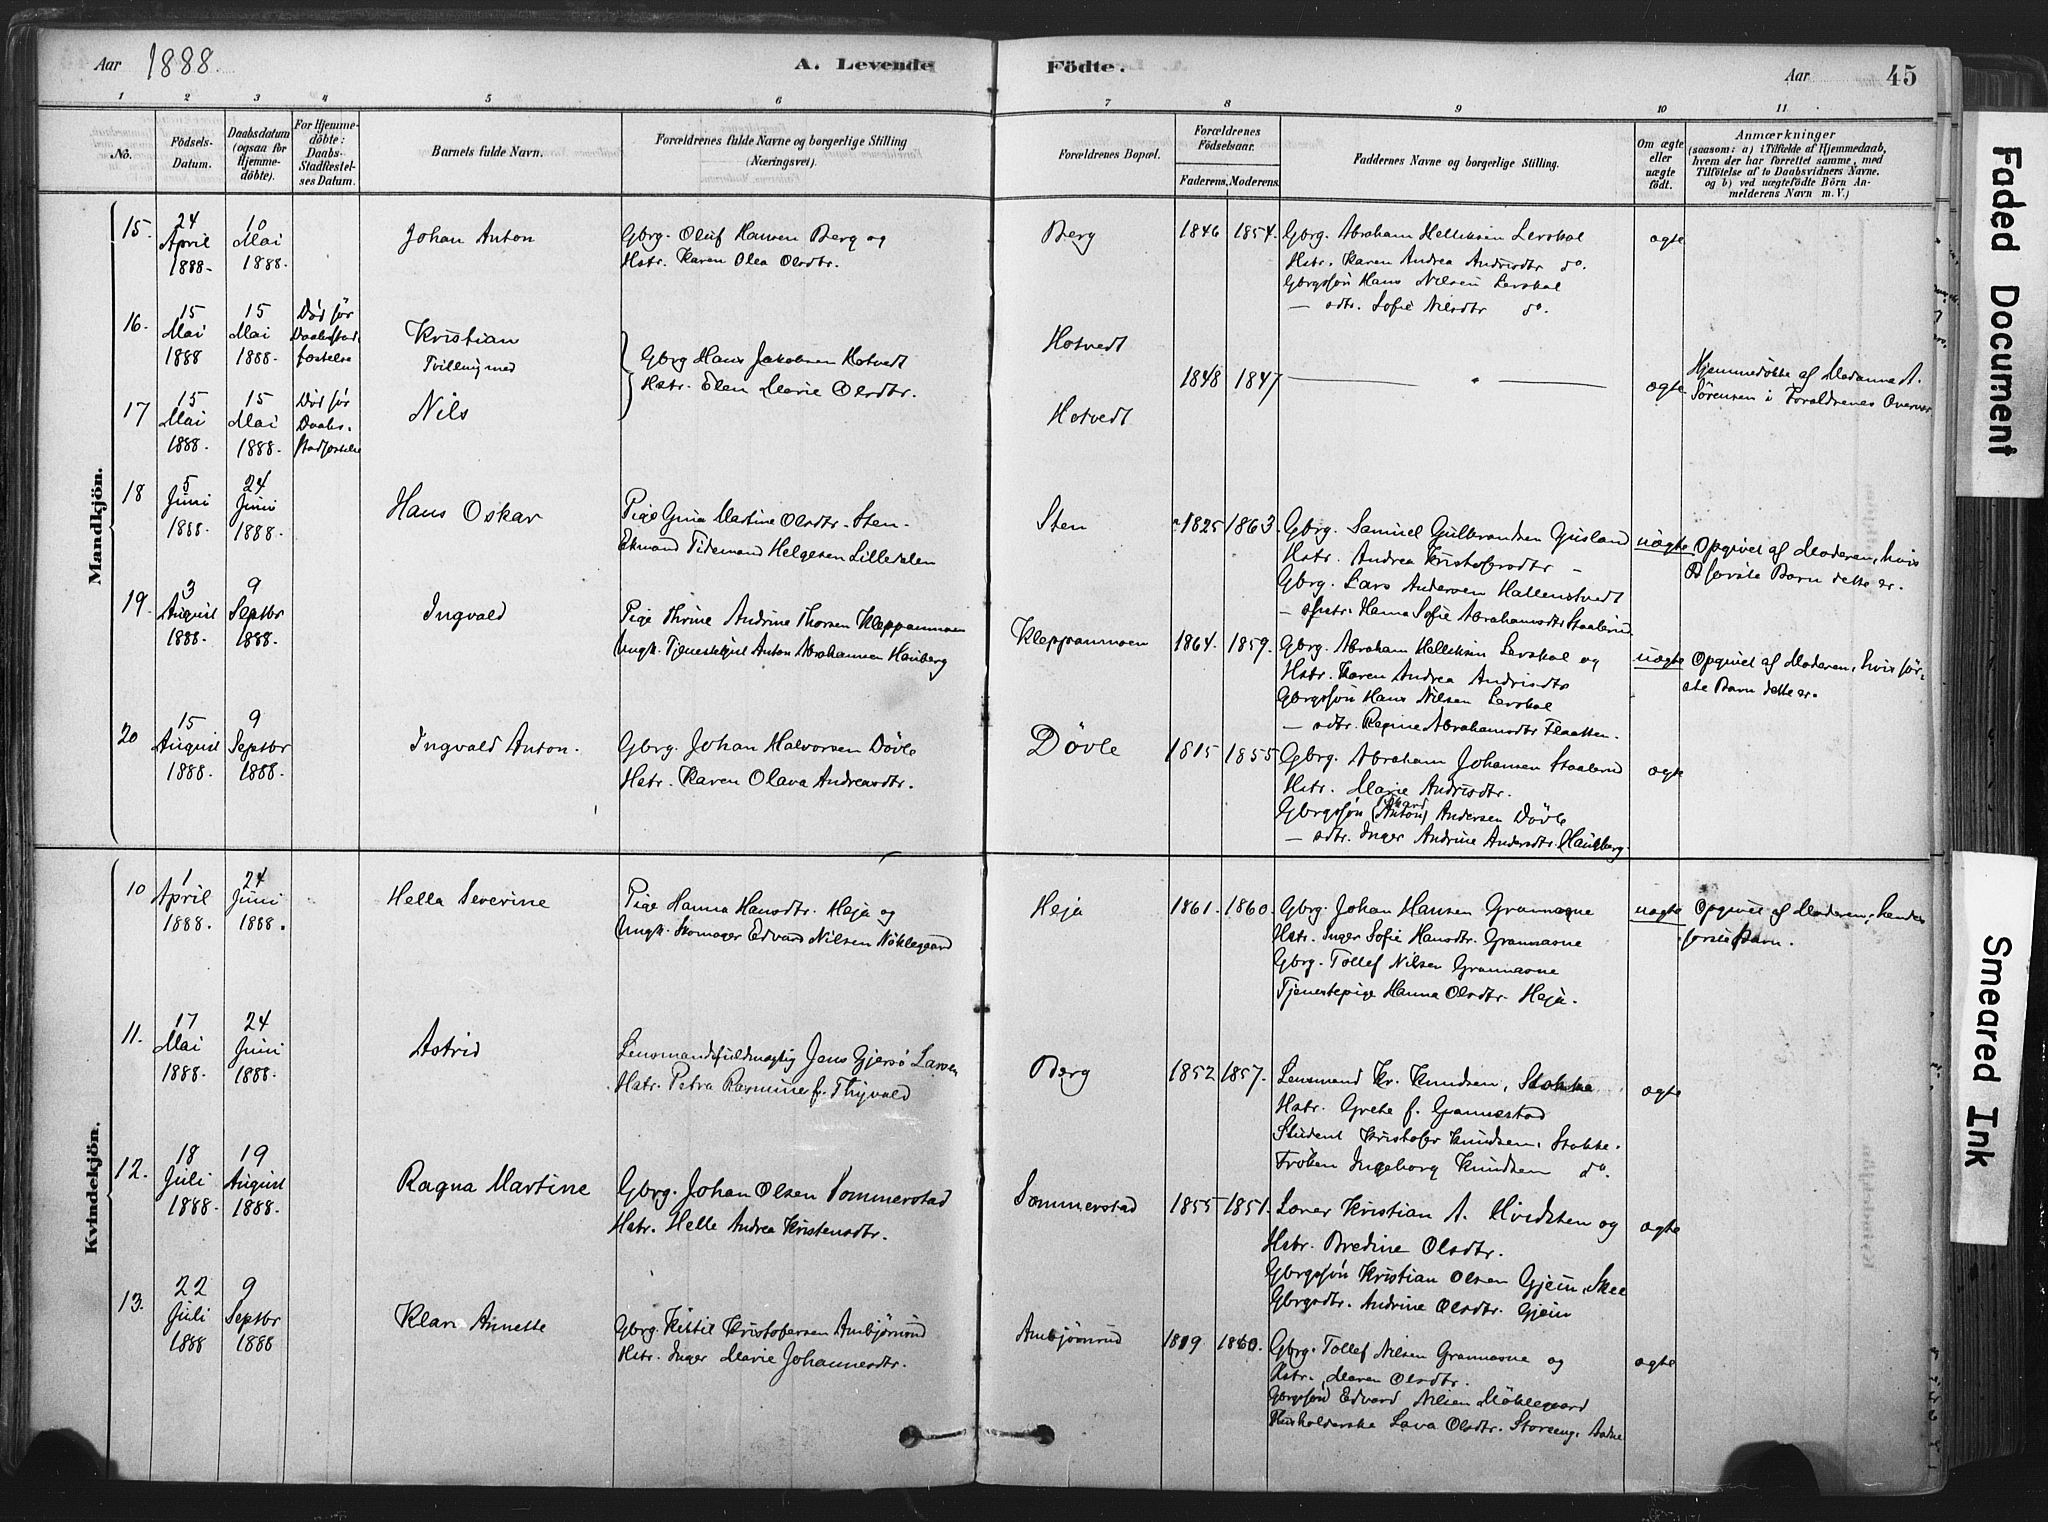 Aar 1888
A. Levende Födte.
Aar
45
1 2 3 4 5 6 7 8 9 10 11
No.
Födsels-
Datum.
Daabsdatum
(ogsaa for
Hjemme-
döbte).
For Hjemme-
döbte:
Daabs-
Stadfæstel-
ses Datum.
Barnets fulde Navn.
Forældrenes fulde Navne og borgerlige Stilling
(Næringsvei).
Forældrenes Bopæl.
Forældrenes
Födselsaar.
Faderens. Moderens.
Faddernes Navne og borgerlige Stilling.
Om ægte
eller
uægte
födt.
Anmærkninger
(saasom: a) i Tilfælde af Hjemmedaab,
hvem der har forrettet samme, med
Tilföielse af to Daabsvidners Navne.
og b) ved uægtefödte Börn An-
melderens Navn m. V.)
Mandkjön.
15.
24
April
1888.
10
Mai
1888.
Johan Anton
Gbrg. Oluf Hansen Berg og
Hstr. Karen Olea Olsdtr.
Berg
1846 1854.
Gbrg. Abraham Helliksen Lerskal
Hstr. Karen Andrea Andrisdtr do.
Gbrgssøn Hans Nilsen Lerskal
— sdtr. Sofie Nilsdtr do.
ægte
16.
15
Mai
1888
15
Mai
1888.
Død før
Daabsstad
fæstelse
Kristian
Tvilling med
Gbrg Hans Jakobsen Hotvedt
Hstr. Elen Marie Olsdtr.
Hotvedt
1848 1847
ægte
Hjemmedøbte af Madame A.
Sørensen i Forældrenes Overvær
17
15
Mai
1888.
15
Mai
1888.
Død før
Daabs-
stadfæstelse
Nils
Hotvedt
18
5
Juni
1888
24
Juni
1888.
Hans Oskar
Pige Gina Martine Olsdtr. Sten
Ekmand Tidemand Helgesen Lilledalen
Sten
1825 1863.
Gbrg. Samuel Gulbrandsen Gusland
Hstr. Andrea Kristofersdtr
Gbrg. Lars Andersen Hallenstvedt
— Hanna Sofie Abrahamsdtr Staalerud
uægte
Opgivet af Moderen, hvis
første Barn dette er.
19.
3
August
1888.
9
Septbr
1888.
Ingvald
Pige Thrine Andrine Thorsen Kleppanmoen
Ungk. Tjenestekarl Anton Abrahamsen Hauberg
Kleppanmoen
1864. 1859.
Gbrg. Abraham Helliksen Lerskal og
Hstr. Karen Andrea Andrisdtr
Gbrgssøn Hans Nilsen Lerskal
— sdtr. Regine Abrahamsdtr Flaatten.
uægte
Opgivet af Moderen, hvis før-
ste Barn dette er.
20
15
August
1888.
9
Septbr
1888.
Ingvald Anton.
Gbrg. Johan Halvorsen Døvle
Hstr. Karen Olava Andreasdtr.
Døvle
1815 1855
Gbrg. Abraham Johansen Staalerud
Hstr. Marie Andrisdtr.
Gbrgssøn (Anton) Andersen Døvle
— sdtr. Inger Andrine Andersdtr. Hauberg.
ægte
Kvindekjön.
10
1
April
1888.
24
Juni
1888.
Hella Severine
Pige Hanna Hansdtr. Heja og
Ungk. Skomager Edvard Nilsen Nøklegaard
Heja
1861. 1860.
Gbrg. Johan Hansen Grannæsne
Hstr. Inger Sofie Hansdtr. Grannæsne
Gbrg. Tollef Nilsen Grannæsne
Tjenestepige Hanna Olsdtr. Heja.
uægte
Opgivet af Moderen, hendes
første Barn.
11.
17
Mai
1888.
24
Juni
1888.
Astrid
Lensmandsfuldmægtig Jens Gjersø Larsen
Hstr. Petra Rasmine f. Thyvold
Berg
1852 1857.
Lensmand Kr. Knudsen, Stokke
Hstr. Grethe f. Grannestad
Student Kristofer Knudsen, Stokke.
Frøken Ingeborg Knudsen do.
ægte
12.
18
Juli
1888.
19
August
1888.
Ragna Martine
Gbrg. Johan Olsen Sommerstad
Hstr. Helle Andrea Kristensdtr.
Sommerstad
1855 1851.
Lærer Kristian A. Hvidsten og
Hstr. Bredine Olsdtr.
Gbrgssøn Kristian Olsen Gjein, Skee
Gbrgsdtr. Andrine Olsdtr. Gjein
ægte
13.
22
Juli
1888
9
Septbr
1888
Klara Annette
Gbrg. Kittil Kristofersen Ambjørnrud
Hstr. Inger Marie Johannesdtr.
Ambjørnrud
1860.
Gbrg. Tollef Nilsen Grannæsne og
Hstr. Maren Olsdtr.
Gbrgssøn Edvard Nilsen Nøklegaard
Husholderske Lava Olsdtr. Storeeng,
ægte
Faded Document
Smeared Ink